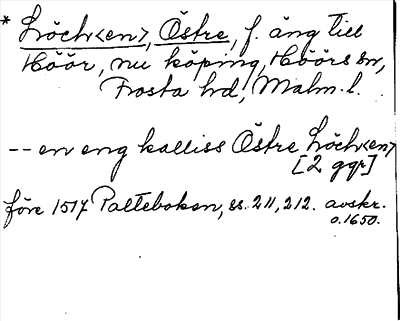 * Löch<en>, Östre, f. äng till
Höör, nu köping, Höörs sn,
Frosta hd, Malm. l.
-- en eng kalliss Östre Löch<en>
[2 ggr]
före 1517 Palteboken, ss. 211, 212. avskr.
o. 1650.